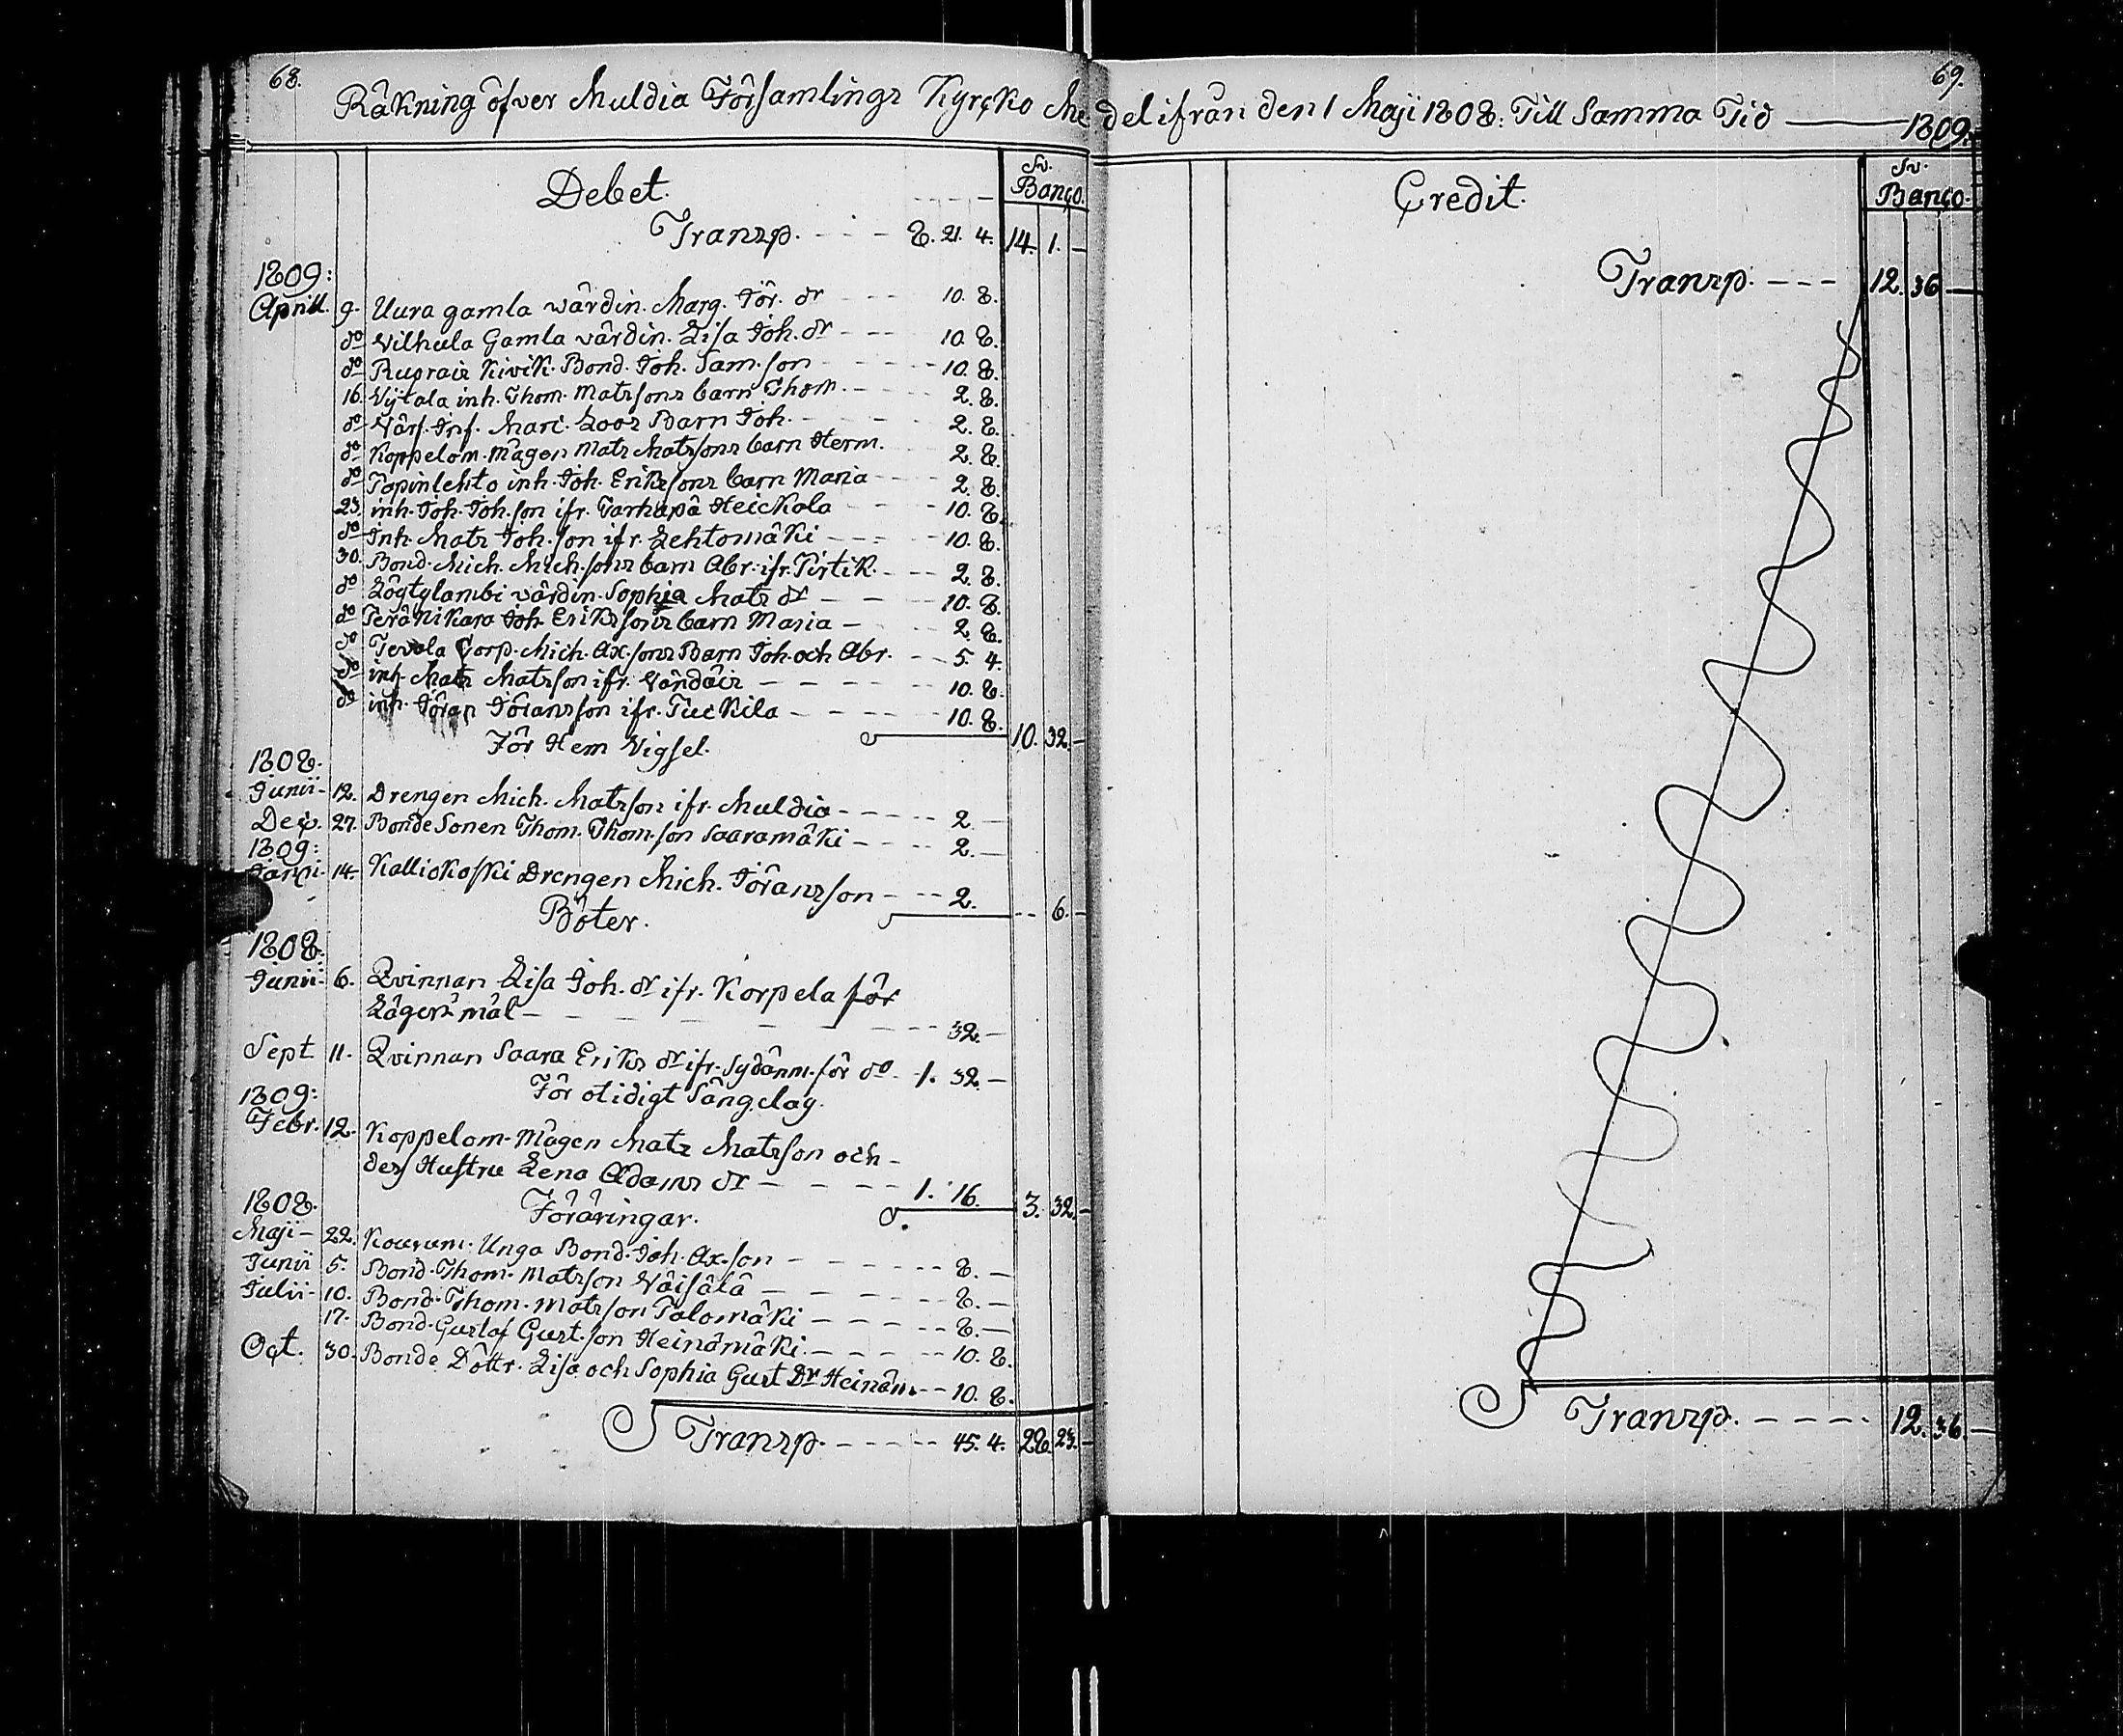 68.
Räkning öfver Muldia Församlings Kyrcko Medel ifrån den 1 Maji 1808. Till Samma Tid — 1809.
Debet.
Sv.
Banco.
Transp. 8. 21. 4. 14. 1. —
1809:
Aprill. 9. Uura gamla wärdin. Marg. Jör. dr 10. 8.
do Vilhula Gamla värdin. Lisa Joh. dr 10. 8.
do Ruprais Kivik. Bond. Joh. Sam. son 10. 8.
16. inh. Thom. Matssons barn Thom. 2. 8.
do Inf. Mari. Loos Barn Joh. 2. 8.
do Koppelom. Mågen Mats Matssons barn Herm. 2. 8.
do Topinlehto inh. Joh. Erikssons barn Maria 2. 8.
23. inh. Joh. Joh. son ifr. Tarhapä Heickola 10. 8.
do Inh. Mats Joh. son ifr. Lehtomäki 10. 8.
30. Bond. Mich. Mich. sons barn Abr. ifr. Pirtik. 2. 8.
do Lögtylambi värdin. Sophia Mats dr 10. 8.
do Peränikara Joh. Erikssons barn Maria 2. 8.
do Tevola Corp. Mich. Ax. sons Barn Joh. och Abr. 5. 4.
do inh. Mats Matsson ifr. 10. 8.
do inh. Jöran Jöransson ifr. Tuckila 10. 8.
10. 32. —
För Hem Vigsel.
1808.
Junii 12. Drengen Mich. Matsson ifr. Muldia 2. —
Dec. 27. Bonde Sonen Thom. Thom. son Saaramäki 2. —
1809:
Janu. 14. Kalliokoski Drengen Mich. Jöransson 2.
6. —
Böter.
1808.
Junii 6. Qvinnan Lisa Joh. dr ifr. Korpela för
Lägersmål 32. —
Sept. 11. Qvinnan Saara Eriks dr ifr. Sydänm. för do 1. 32. —
För otidigt Sänglag.
1809:
Febr. 12. Koppelom. Mågen Mats Matsson och
dess Hustru Lena Adams dr 1. 16.
3. 32. —
Föräringar.
1808.
Maji 22. Kouvum. Unga Bond. Joh. Ax. son 8. —
Junii 5. Bond. Thom. Matsson Väisälä 8. —
Julii 10. Bond. Thom. Matsson Palomäki 8. —
17. Bond. Gustaf Gust. son Heinämäki 10. 8.
Oct. 30. Bonde Döttr. Lisa och Sophia Gust Dr Heinäm. 10. 8.
Transp. 45. 4. 28. 23. —
69.
Credit.
Sv.
Banco.
Transp. 12. 36. —
Transp. 12. 36. —